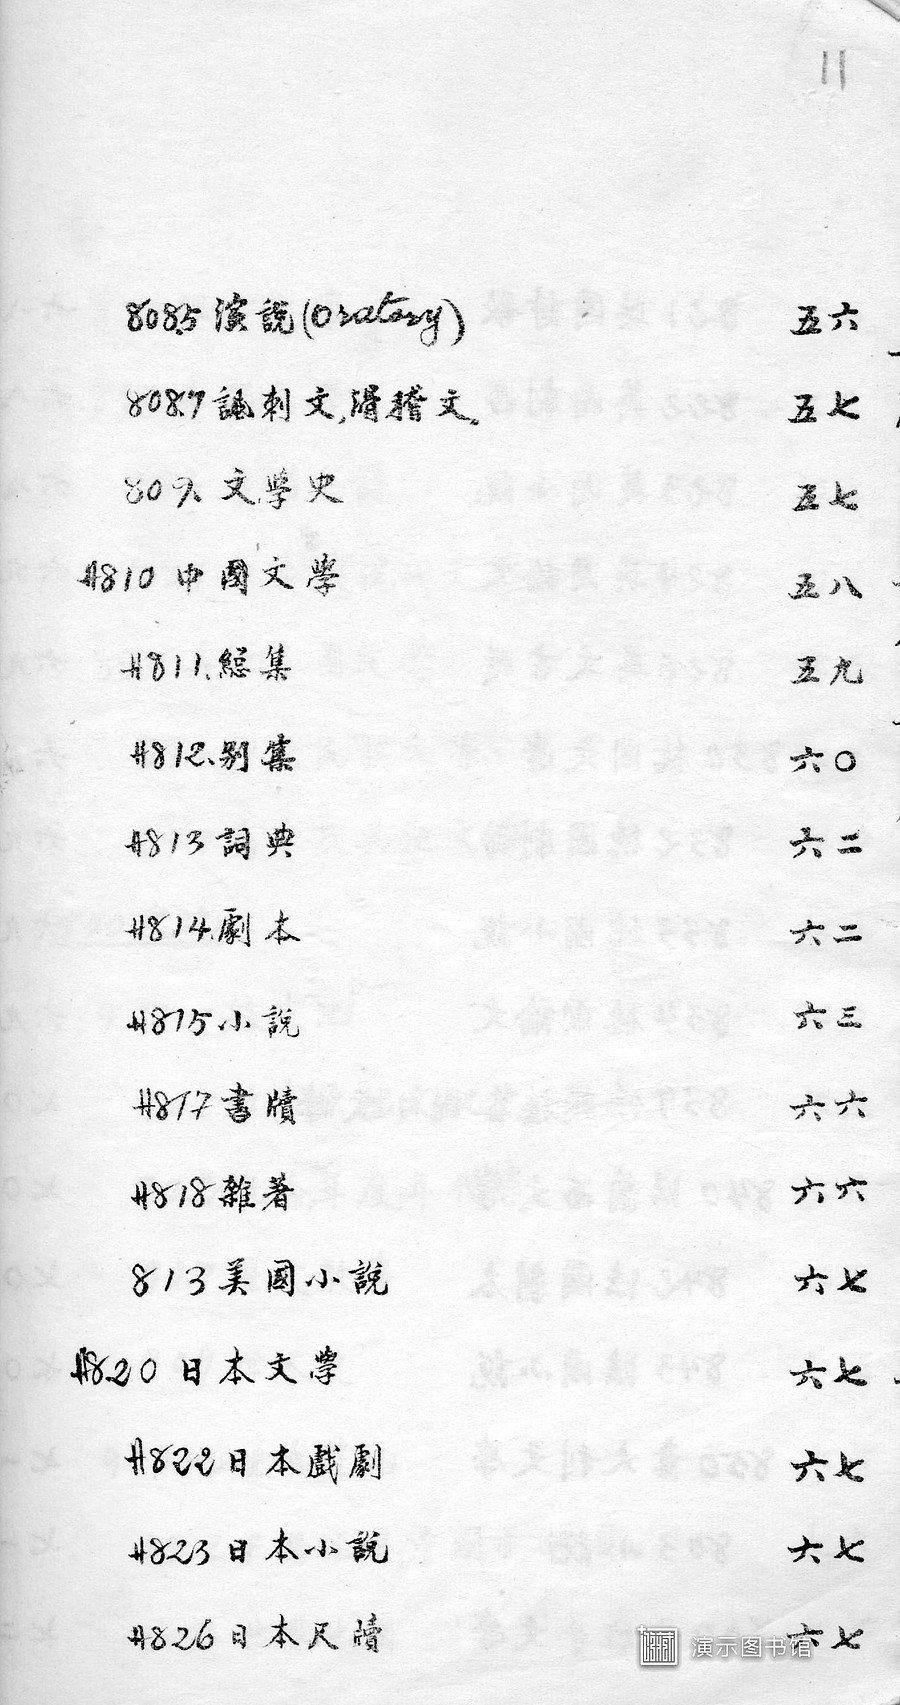 11
808.5 演說(Oratory) 五六
808.7 諷刺文,滑稽文。 五七
809. 文學史 五七
A810 中國文學 五八
A811. 總集 五九
A812. 別集 六〇
A813 詞典 六二
A814. 劇本 六二
A815 小說 六三
A817 書牘 六六
A818 雜著 六六
813 美國小說 六七
A820 日本文學 六七
A822 日本戲劇 六七
A823 日本小說 六七
A826 日本尺牘 六七
演示图书馆